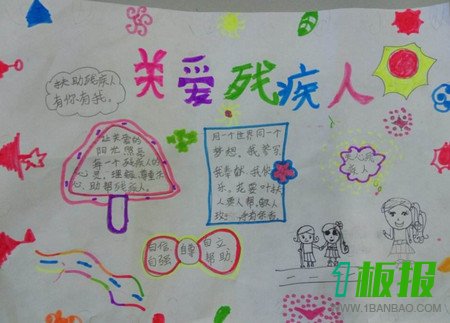 关爱残疾人
扶助残疾人
有你有我。
让关爱的
阳光照亮
每一个残疾人的
心灵,理解,尊重,关
心,助帮残疾人。
同一个世界同一个
梦想,我参与
我奉献我快
乐。
关心残
疾人
自信 自尊 自立
自强 帮助
板报
WWW.1BANBAO.COM